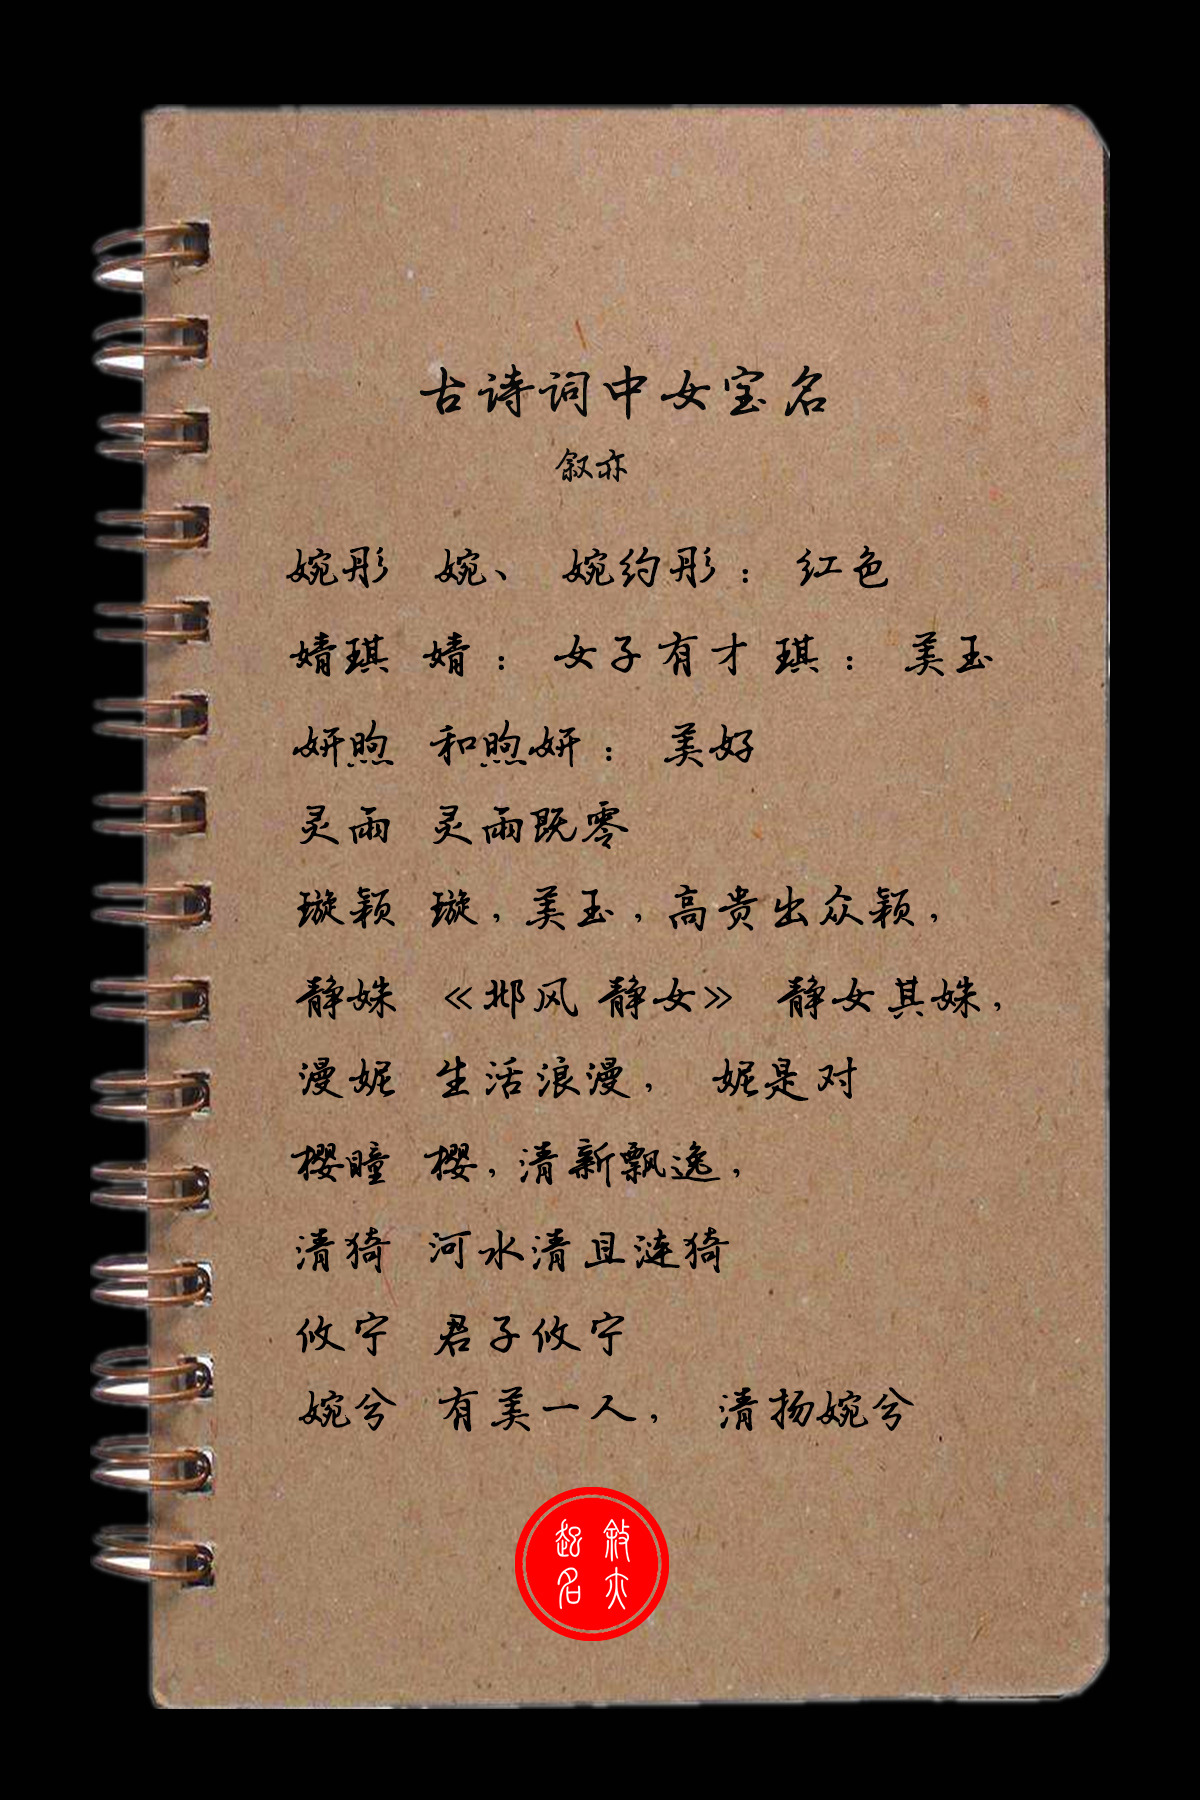 古诗词中女宝名
叙亦
婉彤 婉、 婉约彤： 红色
婧琪 婧： 女子有才 琪： 美玉
妍煦 和煦妍： 美好
灵雨 灵雨既零
璇颖 璇，美玉，高贵出众颖，
静姝 《邶风 静女》 静女其姝，
漫妮 生活浪漫， 妮是对
樱瞳 樱，清新飘逸，
清猗 河水清且涟猗
攸宁 君子攸宁
婉兮 有美一人， 清扬婉兮
叙亦
起名